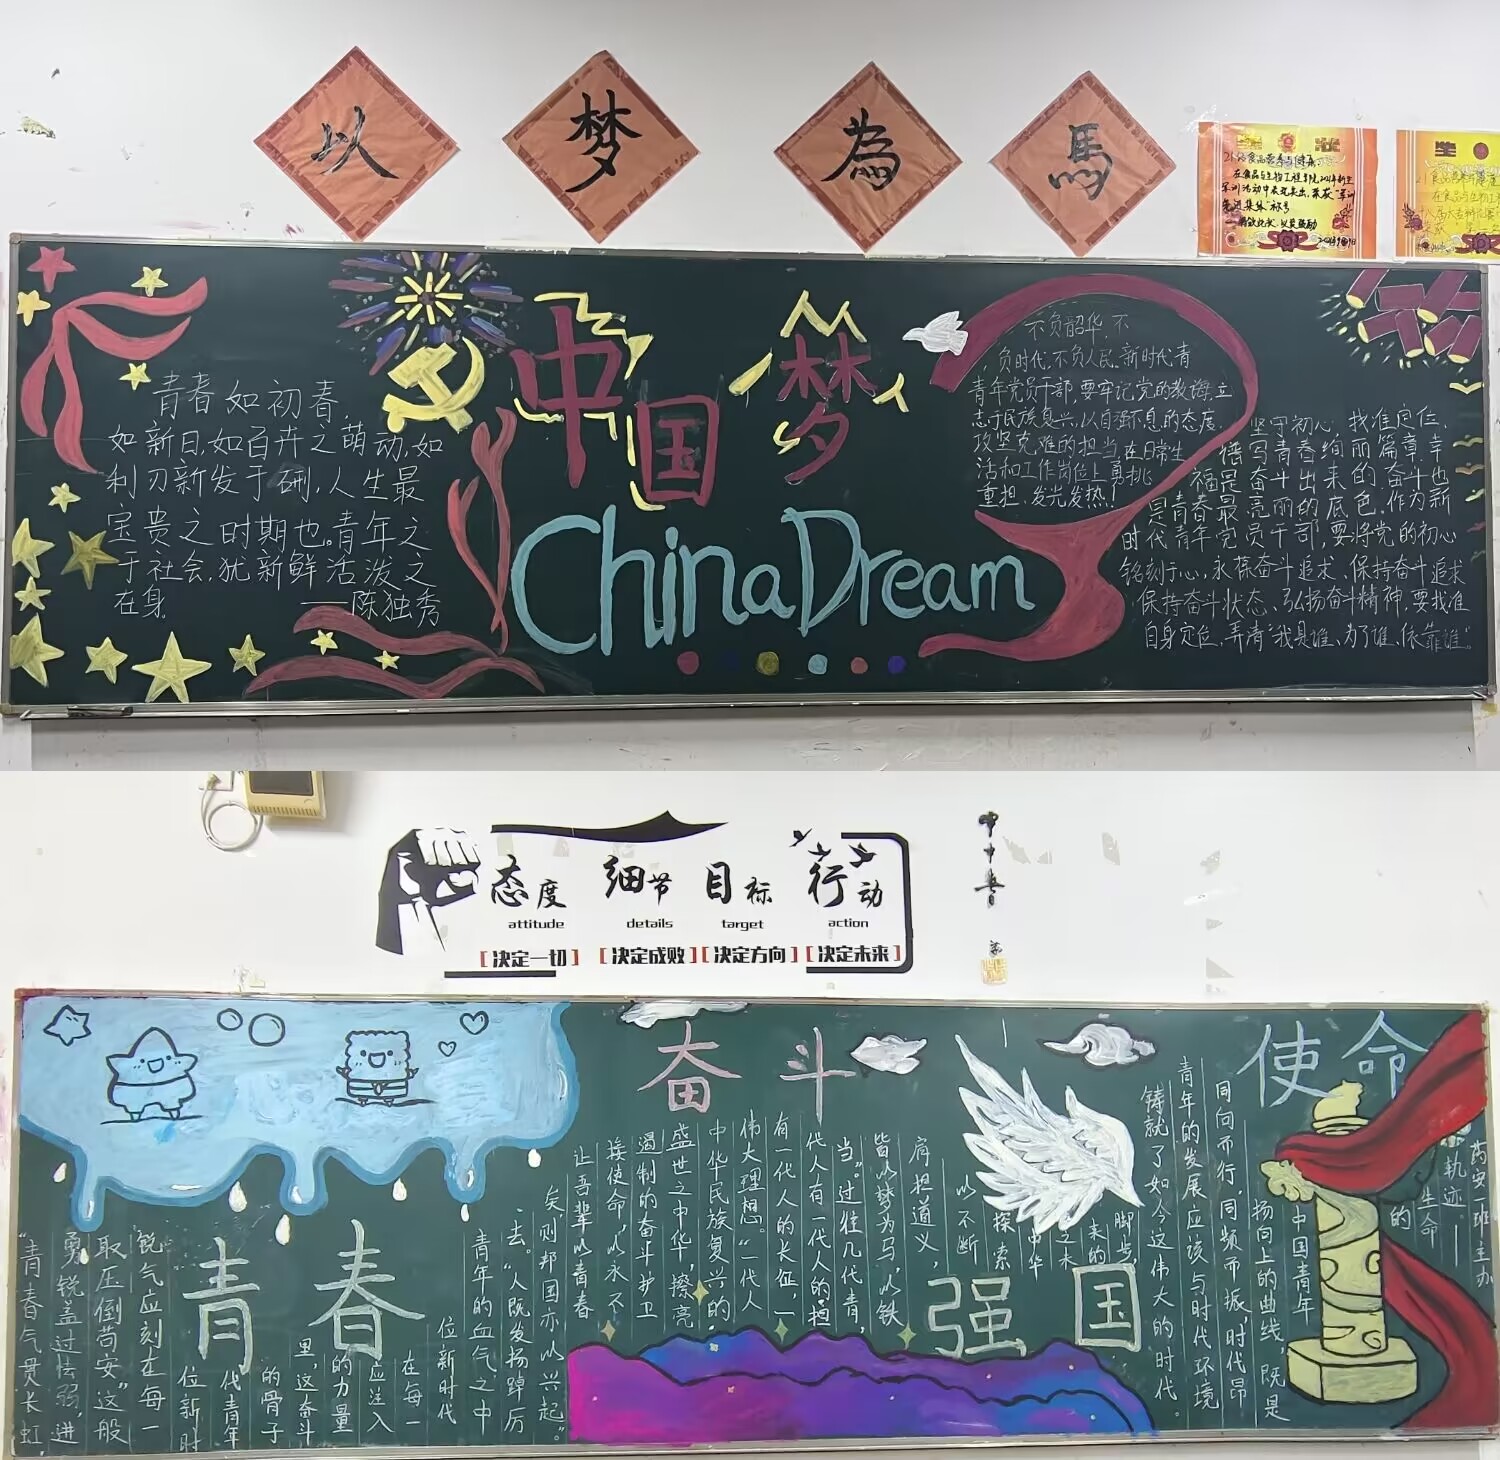 以
梦
為
馬
奖 状
21级食品营养与健康:
在食品与生物工程学院2021年新生
军训活动中表现突出,荣获"军训
先进集体"称号
特发此状,以资鼓励
中国梦
China Dream
青春如初春,
如新日,如百卉之萌动,如
利刃新发于硎,人生最
宝贵之时期也。青年之
于社会,犹新鲜活泼之
在身。
——陈独秀
不负韶华,不
负时代,不负人民,新时代青
青年党员干部,要牢记党的教诲,立
志于民族复兴,以自强不息的态度,
攻坚克难的担当,在日常生
活和工作岗位上勇挑
重担,发光发热!
坚守初心,找准定位,
谱写青春绚丽篇章,幸
福是奋斗出来的,奋斗也
是青春最亮丽的底色,作为新
时代青年党员干部,要将党的初心
铭刻于心,永葆奋斗追求,保持奋斗追求
保持奋斗状态、弘扬奋斗精神,要找准
自身定位,弄清"我是谁、为了谁、依靠谁"
态度
细节
目标
行动
attitude
details
target
action
[决定一切]
[决定成败]
[决定方向]
[决定未来]
青春
奋斗
强国
使命
"青春气贯长虹,
勇锐盖过怯弱,进
取压倒苟安"这般
锐气应刻在每一
位新时
代青年
的骨子
里,这奋斗
的力量
应注入
在每一
位新时代
青年的血气之中
去。"人既发扬踔厉
矣则邦国亦以兴起。"
让吾辈以青春
接使命,以永不
遏制的奋斗护卫
盛世之中华,擦亮
中华民族复兴的
伟大理想。"一代人
有一代人的长征,一
代人有一代人的担
当。"过往几代青,
皆以梦为马,以铁
肩担道义,
以不断
探索
中华
之未
来的
脚步,
铸就了如今这伟大的时代。
青年的发展应该与时代环境
同向而行,同频而振,时代昂
扬向上的曲线,既是
中国青年
的
生命
轨迹。
药安一班主办